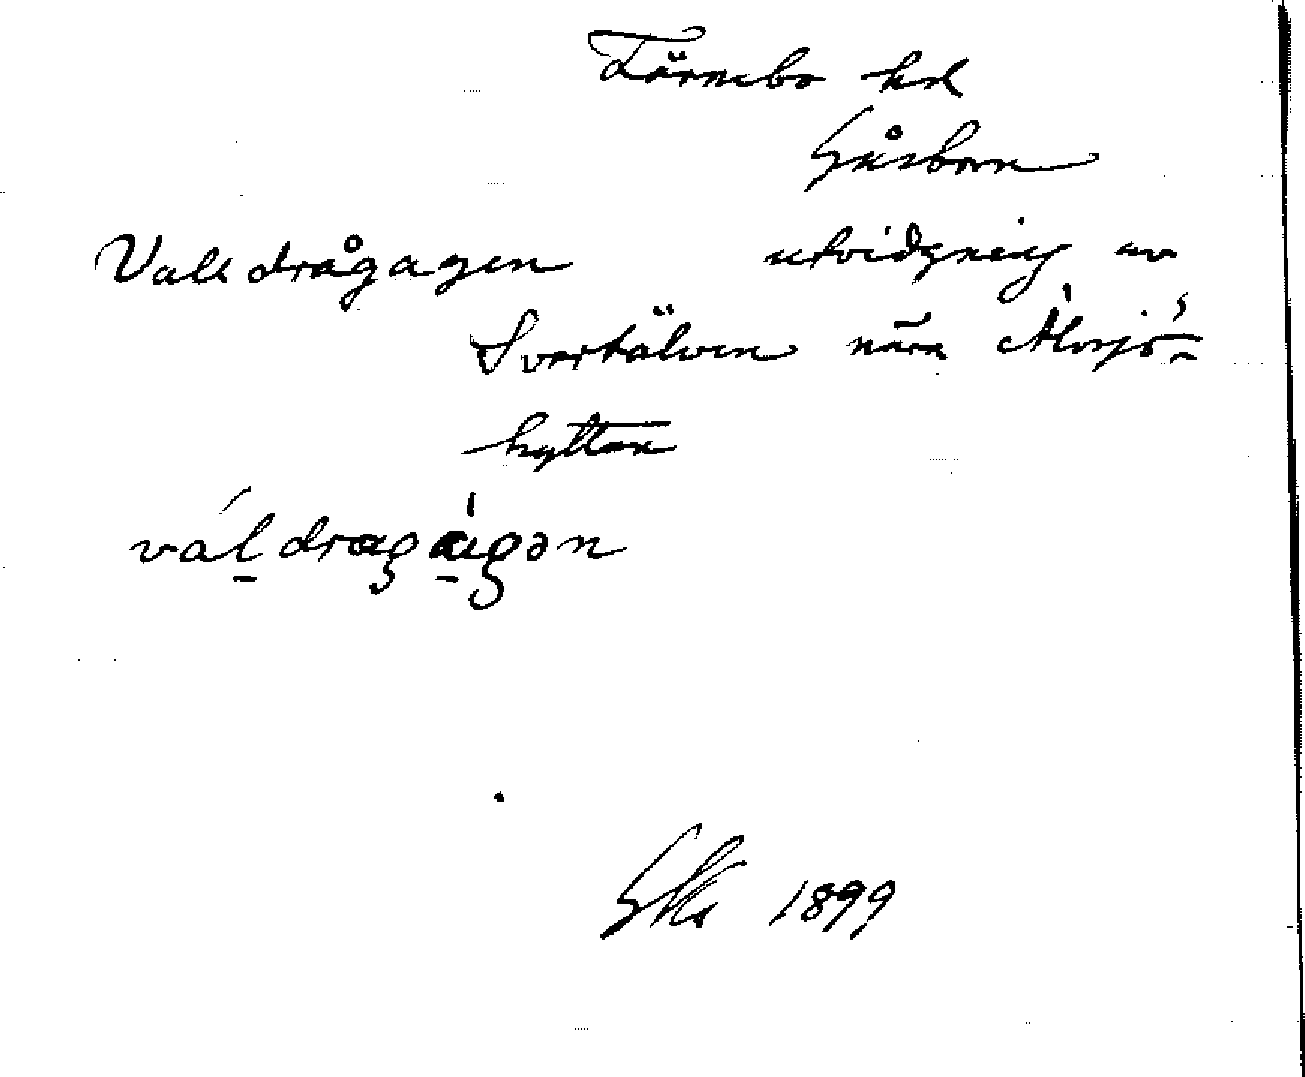 Färnebo hd
Gåsborn
Valldrågagen utvidgning av
Svartälven nära Älvsjö-
hyttan
váldragagən
1899